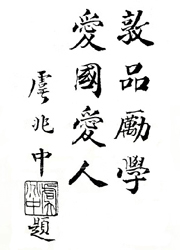 敦品勵學
愛國愛人
虞兆中題